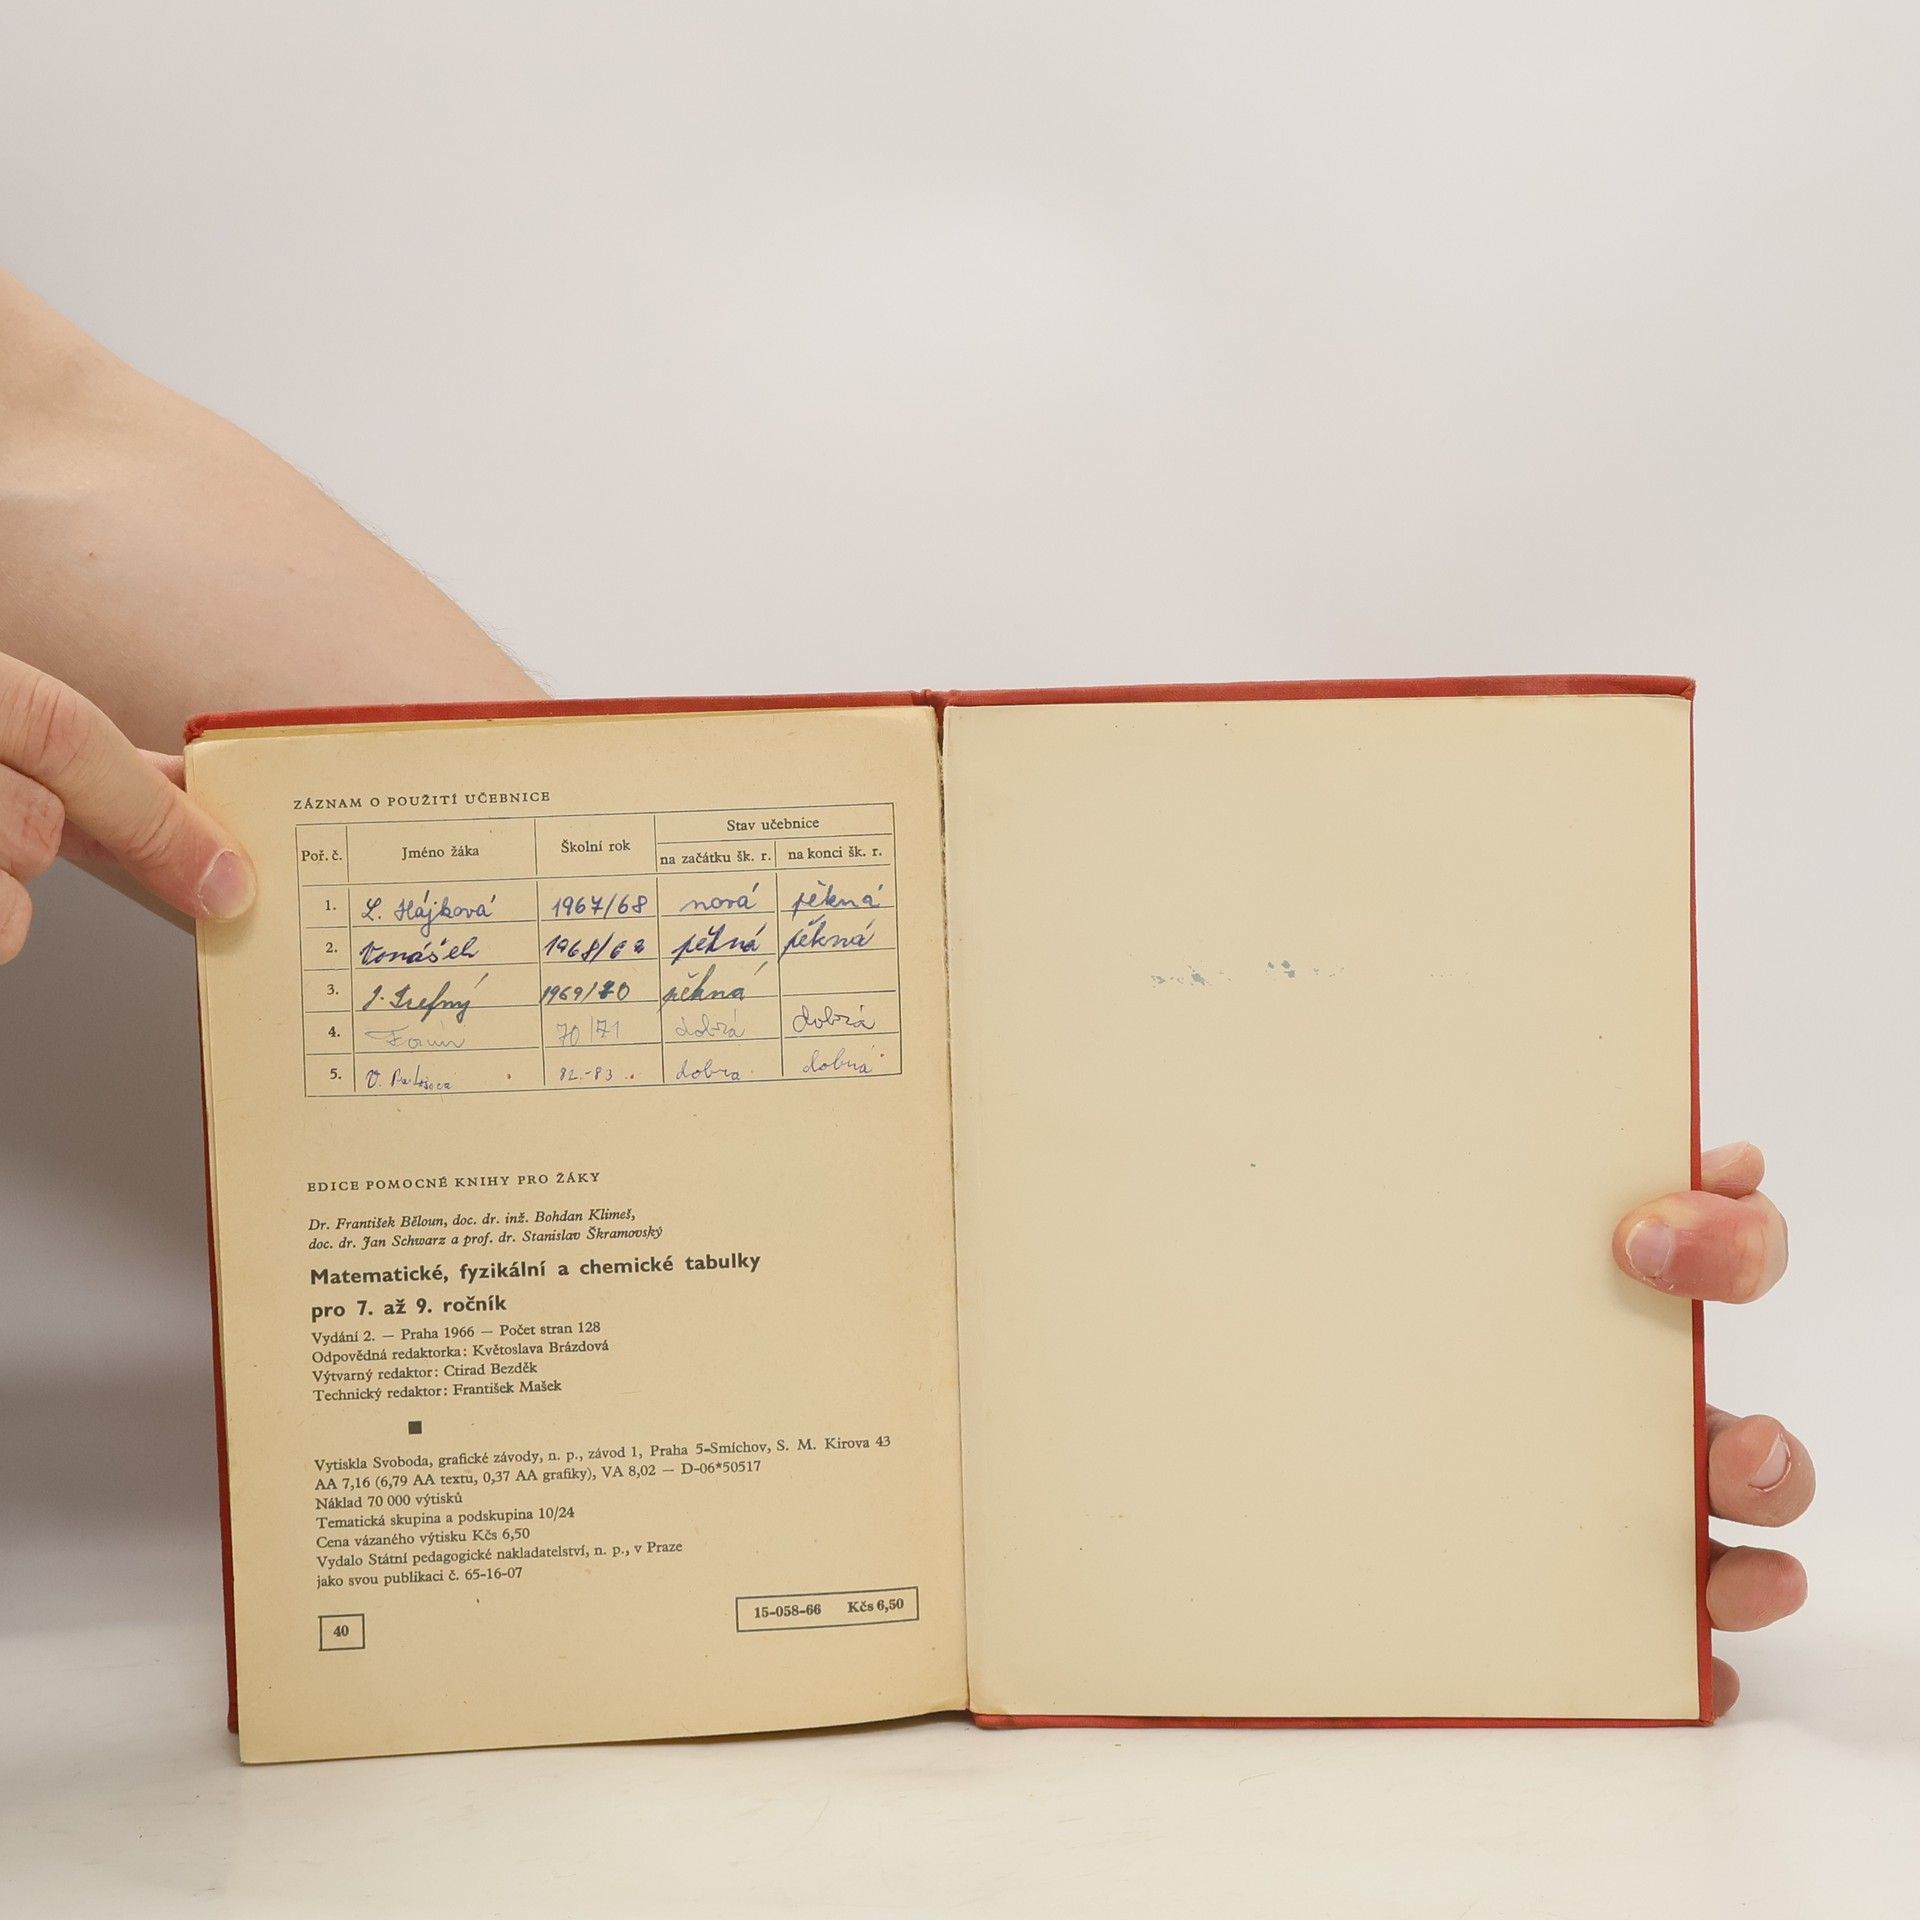 ZÁZNAM O POUŽITÍ UČEBNICE
Poř. č. Jméno žáka Školní rok Stav učebnice
na začátku šk. r. na konci šk. r.
1. L. Hájková 1967/68 nová pěkná
2. Vonášek 1968/69 pěkná pěkná
3. J. 1969/70 pěkná
4. 70/71 dobrá dobrá
5. V. 82.-83. dobra dobrá
EDICE POMOCNÉ KNIHY PRO ŽÁKY
Dr. František Běloun, doc. dr. inž. Bohdan Klimeš,
doc. dr. Jan Schwarz a prof. dr. Stanislav Škramovský
Matematické, fyzikální a chemické tabulky
pro 7. až 9. ročník
Vydání 2. — Praha 1966 — Počet stran 128
Odpovědná redaktorka: Květoslava Brázdová
Výtvarný redaktor: Ctirad Bezděk
Technický redaktor: František Mašek
Vytiskla Svoboda, grafické závody, n. p., závod 1, Praha 5-Smíchov, S. M. Kirova 43
AA 7,16 (6,79 AA textu, 0,37 AA grafiky), VA 8,02 — D-06*50517
Náklad 70 000 výtisků
Tematická skupina a podskupina 10/24
Cena vázaného výtisku Kčs 6,50
Vydalo Státní pedagogické nakladatelství, n. p., v Praze
jako svou publikaci č. 65-16-07
40 15-058-66 Kčs 6,50